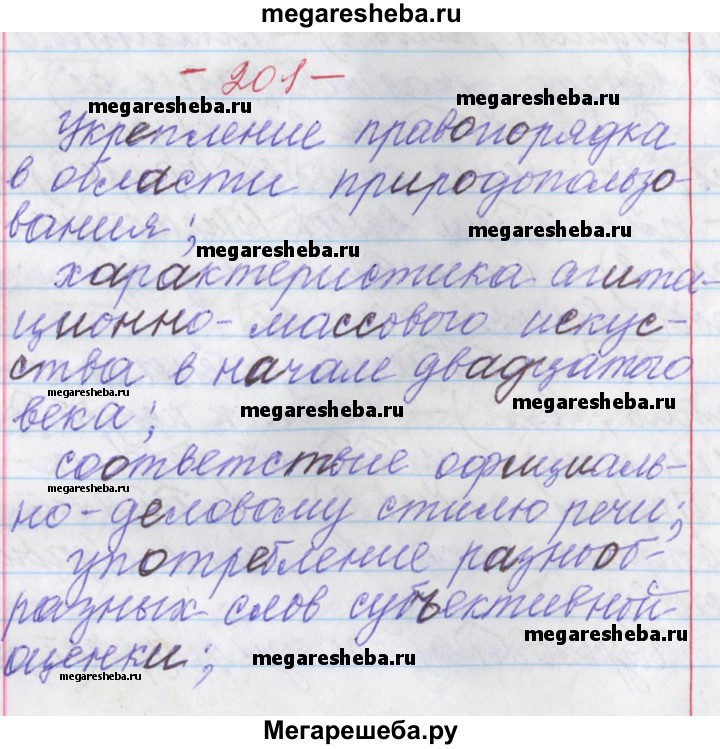 megaresheba.ru
- 201 -
megaresheba.ru
megaresheba.ru
Укрепление правопорядка
в области природопользо-
вания;
megaresheba.ru
megaresheba.ru
характеристика агита-
ционно-массового искус-
ства в начале двадцатого
megaresheba.ru
века;
megaresheba.ru
megaresheba.ru
соответствие официаль-
megaresheba.ru
но-деловому стилю речи;
употребление разнооб-
разных слов субъективной
megaresheba.ru
оценки;
megaresheba.ru
megaresheba.ru
Мегарешеба.ру